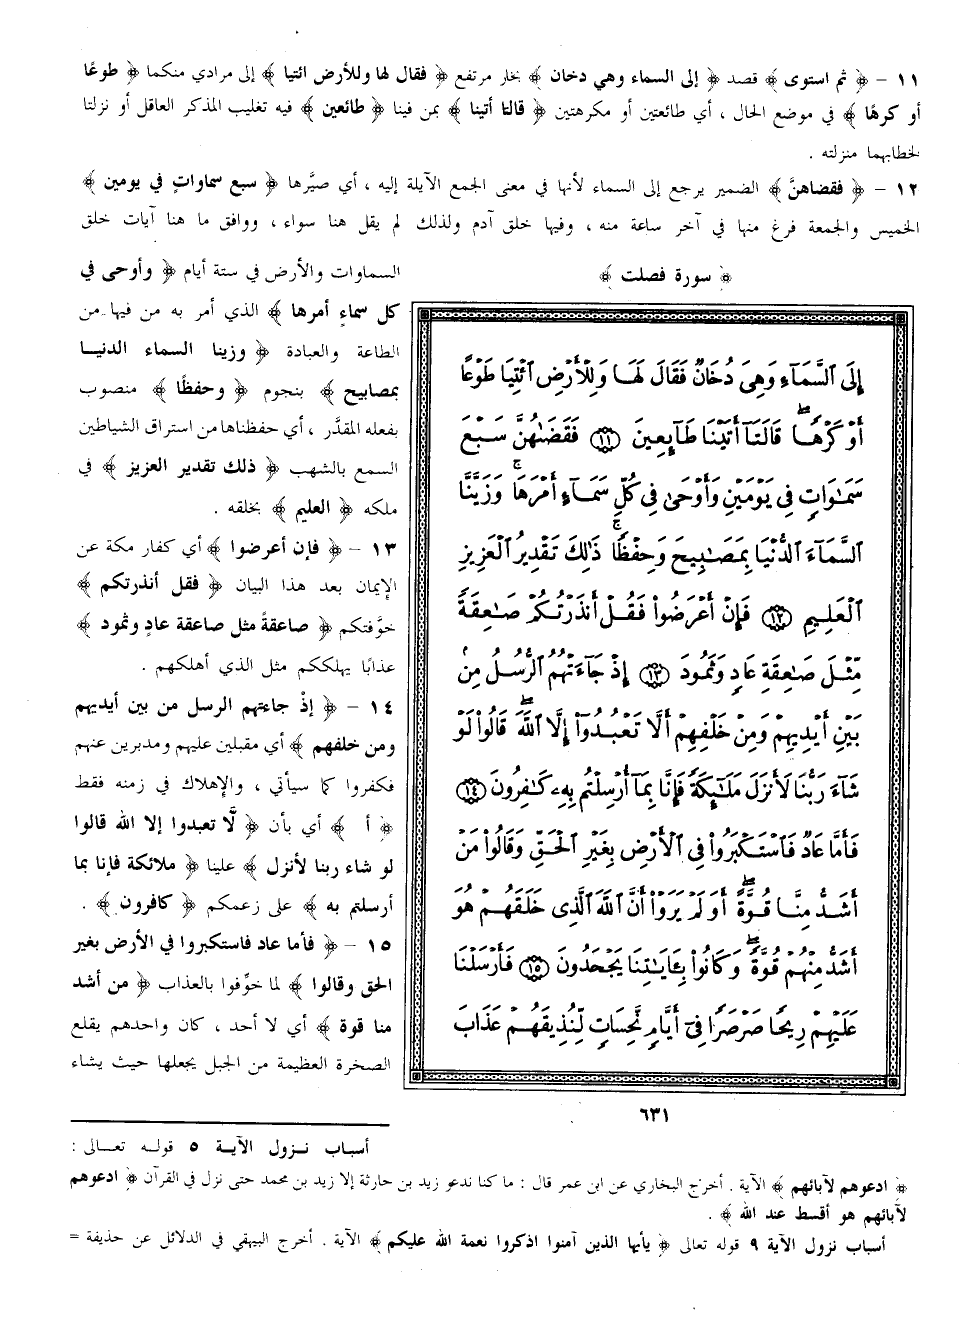 ١١ - ﴿ ثم استوى ﴾ قصد ﴿ إلى السماء وهي دخان ﴾ بخار مرتفع ﴿ فقال لها وللأرض ائتيا ﴾ إلى مرادي منكما ﴿ طوعًا
أو كرهًا ﴾ في موضع الحال ، أي طائعتين أو مكرهتين ﴿ قالتا أتينا ﴾ بمن فينا ﴿ طائعين ﴾ فيه تغليب المذكر العاقل أو نزلتا
لخطابهما منزلته .
١٢ - ﴿ فقضاهنَّ ﴾ الضمير يرجع إلى السماء لأنها في معنى الجمع الآيلة إليه ، أي صيَّرها ﴿ سبع سماواتٍ في يومين ﴾
الخميس والجمعة فرغ منها في آخر ساعة منه ، وفيها خلق آدم ولذلك لم يقل هنا سواء ، ووافق ما هنا آيات خلق
السماوات والأرض في ستة أيام ﴿ وأوحى في
كل سماءٍ أمرها ﴾ الذي أمر به من فيها من
الطاعة والعبادة ﴿ وزينا السماء الدنيا
بمصابيح ﴾ بنجوم ﴿ وحفظًا ﴾ منصوب
بفعله المقدَّر ، أي حفظناها من استراق الشياطين
السمع بالشهب ﴿ ذلك تقدير العزيز ﴾ في
ملكه ﴿ العليم ﴾ بخلقه .
١٣ - ﴿ فإن أعرضوا ﴾ أي كفار مكة عن
الإيمان بعد هذا البيان ﴿ فقل أنذرتكم ﴾
خوَّفتكم ﴿ صاعقةً مثل صاعقة عادٍ وثمود ﴾
عذابًا يهلككم مثل الذي أهلكهم .
١٤ - ﴿ إذْ جاءتهم الرسل من بين أيديهم
ومن خلفهم ﴾ أي مقبلين عليهم ومدبرين عنهم
فكفروا كما سيأتي ، والإهلاك في زمنه فقط
﴿ أ ﴾ أي بأن ﴿ لَّا تعبدوا إلا الله قالوا
لو شاء ربنا لأنزل ﴾ علينا ﴿ ملائكة فإنا بما
أرسلتم به ﴾ على زعمكم ﴿ كافرون ﴾ .
١٥ - ﴿ فأما عاد فاستكبروا في الأرض بغير
الحق وقالوا ﴾ لما خوِّفوا بالعذاب ﴿ من أشد
منا قوة ﴾ أي لا أحد ، كان واحدهم يقلع
الصخرة العظيمة من الجبل يجعلها حيث يشاء
﴿ سورة فصلت ﴾
إِلَى ٱلسَّمَآءِ وَهِىَ دُخَانٌ فَقَالَ لَهَا وَلِلْأَرْضِ ٱئْتِيَا طَوْعًا
أَوْ كَرْهًا ۖ قَالَتَآ أَتَيْنَا طَآئِعِينَ ۝١١ فَقَضَىٰهُنَّ سَبْعَ
سَمَٰوَاتٍ فِى يَوْمَيْنِ وَأَوْحَىٰ فِى كُلِّ سَمَآءٍ أَمْرَهَا ۚ وَزَيَّنَّا
ٱلسَّمَآءَ ٱلدُّنْيَا بِمَصَٰبِيحَ وَحِفْظًا ۚ ذَٰلِكَ تَقْدِيرُ ٱلْعَزِيزِ
ٱلْعَلِيمِ ۝١٢ فَإِنْ أَعْرَضُوا۟ فَقُلْ أَنذَرْتُكُمْ صَٰعِقَةً
مِّثْلَ صَٰعِقَةِ عَادٍ وَثَمُودَ ۝١٣ إِذْ جَآءَتْهُمُ ٱلرُّسُلُ مِنۢ
بَيْنِ أَيْدِيهِمْ وَمِنْ خَلْفِهِمْ أَلَّا تَعْبُدُوٓا۟ إِلَّا ٱللَّهَ ۖ قَالُوا۟ لَوْ
شَآءَ رَبُّنَا لَأَنزَلَ مَلَٰٓئِكَةً فَإِنَّا بِمَآ أُرْسِلْتُم بِهِۦ كَٰفِرُونَ ۝١٤
فَأَمَّا عَادٌ فَٱسْتَكْبَرُوا۟ فِى ٱلْأَرْضِ بِغَيْرِ ٱلْحَقِّ وَقَالُوا۟ مَنْ
أَشَدُّ مِنَّا قُوَّةً ۖ أَوَلَمْ يَرَوْا۟ أَنَّ ٱللَّهَ ٱلَّذِى خَلَقَهُمْ هُوَ
أَشَدُّ مِنْهُمْ قُوَّةً ۖ وَكَانُوا۟ بِـَٔايَٰتِنَا يَجْحَدُونَ ۝١٥ فَأَرْسَلْنَا
عَلَيْهِمْ رِيحًا صَرْصَرًا فِىٓ أَيَّامٍ نَّحِسَاتٍ لِّنُذِيقَهُمْ عَذَابَ
٦٣١
أسباب نـزول الآيـة ٥ قولـه تعـالى :
﴿ ادعوهم لآبائهم ﴾ الآية . أخرج البخاري عن ابن عمر قال : ما كنا ندعو زيد بن حارثة إلا زيد بن محمد حتى نزل في القرآن ﴿ ادعوهم
لآبائهم هو أقسط عند الله ﴾ .
أسباب نزول الآية ٩ قوله تعالى ﴿ يأيها الذين آمنوا اذكروا نعمة الله عليكم ﴾ الآية . أخرج البيهقي في الدلائل عن حذيفة =